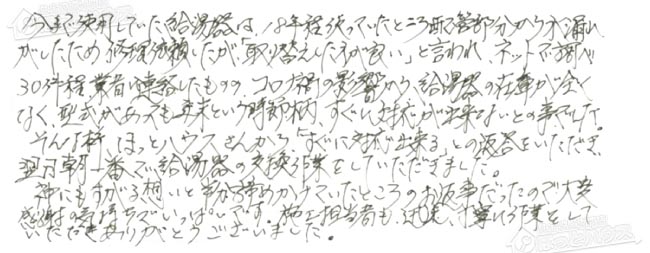 今まで使用していた給湯器は、18年程使っていたところ配管部分から水漏れ
がしたため修理依頼したが「取り替えした方が良い」と言われ、ネットで調べ
30件程業者に連絡したものの、コロナ禍の影響から、給湯器の在庫が全く
なく、型式があっても年末という時節柄、すぐに対応が出来ないとの事でした。
そんな時、ほっとハウスさんから「すぐに対応出来る」との返答をいただき、
翌日朝一番で給湯器の交換作業をしていただきました。
神にもすがる想いと半分諦めかけていたところのお返事だったので大変
感謝の気持ちでいっぱいです。施工担当者も、迅速、丁寧に作業をして
いただきありがとうございました。